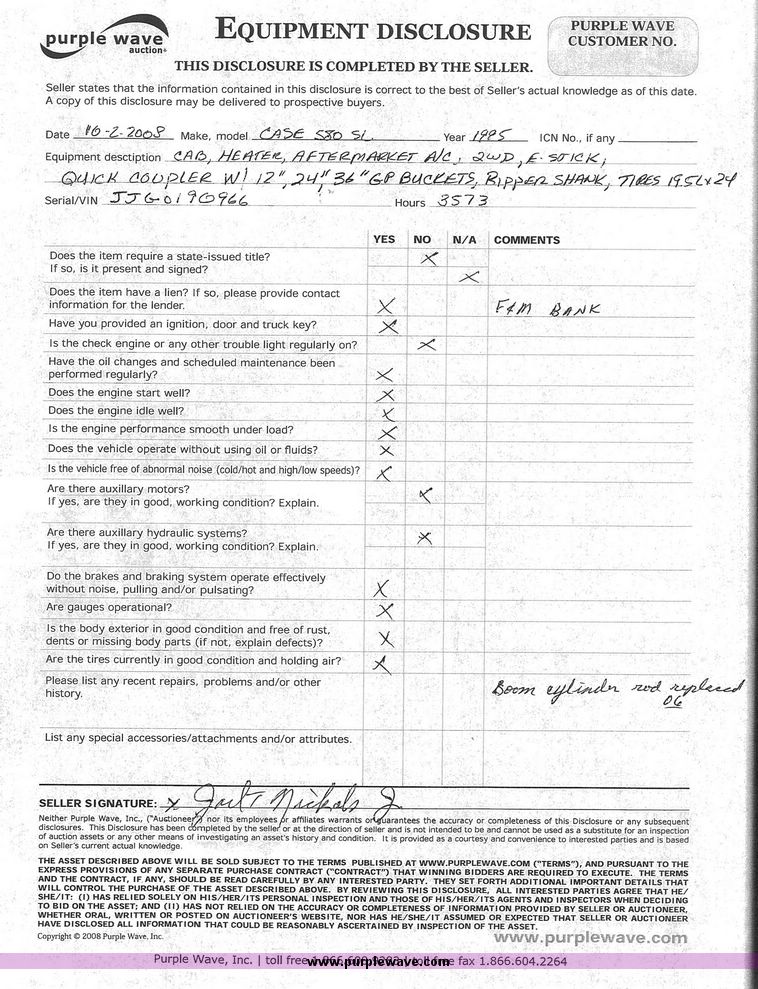 purple wave
auction+
EQUIPMENT DISCLOSURE
PURPLE WAVE
CUSTOMER NO.
THIS DISCLOSURE IS COMPLETED BY THE SELLER.
Seller states that the information contained in this disclosure is correct to the best of Seller's actual knowledge as of this date.
A copy of this disclosure may be delivered to prospective buyers.
Date 10-2-2008 Make, model CASE 580 SL Year 1995 ICN No., if any
Equipment desctiption CAB, HEATER, AFTERMARKET A/C, 2WD, E-STICK,
QUICK COUPLER W/ 12", 24", 36" GP BUCKETS, RIPPER SHANK, TIRES 19.5Lx24
Serial/VIN JJG0190966 Hours 3573
YES NO N/A COMMENTS
Does the item require a state-issued title? X
If so, is it present and signed? X
Does the item have a lien? If so, please provide contact
information for the lender. X F&M BANK
Have you provided an ignition, door and truck key? X
Is the check engine or any other trouble light regularly on? X
Have the oil changes and scheduled maintenance been
performed regularly? X
Does the engine start well? X
Does the engine idle well? X
Is the engine performance smooth under load? X
Does the vehicle operate without using oil or fluids? X
Is the vehicle free of abnormal noise (cold/hot and high/low speeds)? X
Are there auxillary motors? X
If yes, are they in good, working condition? Explain.
Are there auxillary hydraulic systems? X
If yes, are they in good, working condition? Explain.
Do the brakes and braking system operate effectively
without noise, pulling and/or pulsating? X
Are gauges operational? X
Is the body exterior in good condition and free of rust,
dents or missing body parts (if not, explain defects)? X
Are the tires currently in good condition and holding air? X
Please list any recent repairs, problems and/or other Boom cylinder rod replaced
history. 06
List any special accessories/attachments and/or attributes.
SELLER SIGNATURE: X Nickols Jr
Neither Purple Wave, Inc., ("Auctioneer") nor its employees or affiliates warrants or guarantees the accuracy or completeness of this Disclosure or any subsequent
disclosures. This Disclosure has been completed by the seller or at the direction of seller and is not intended to and cannot be used as a substitute for an inspection
of auction assets or any other means of investigating an asset's history and condition. It is provided as a courtesy and convenience to interested parties and is based
on Seller's current actual knowledge.
THE ASSET DESCRIBED ABOVE WILL BE SOLD SUBJECT TO THE TERMS PUBLISHED AT WWW.PURPLEWAVE.COM ("TERMS"), AND PURSUANT TO THE
EXPRESS PROVISIONS OF ANY SEPARATE PURCHASE CONTRACT ("CONTRACT") THAT WINNING BIDDERS ARE REQUIRED TO EXECUTE. THE TERMS
AND THE CONTRACT, IF ANY, SHOULD BE READ CAREFULLY BY ANY INTERESTED PARTY. THEY SET FORTH ADDITIONAL IMPORTANT DETAILS THAT
WILL CONTROL THE PURCHASE OF THE ASSET DESCRIBED ABOVE. BY REVIEWING THIS DISCLOSURE, ALL INTERESTED PARTIES AGREE THAT HE/
SHE/IT: (I) HAS RELIED SOLELY ON HIS/HER/ITS PERSONAL INSPECTION AND THOSE OF HIS/HER/ITS AGENTS AND INSPECTORS WHEN DECIDING
TO BID ON THE ASSET; AND (II) HAS NOT RELIED ON THE ACCURACY OR COMPLETENESS OF INFORMATION PROVIDED BY SELLER OR AUCTIONEER,
WHETHER ORAL, WRITTEN OR POSTED ON AUCTIONEER'S WEBSITE, NOR HAS HE/SHE/IT ASSUMED OR EXPECTED THAT SELLER OR AUCTIONEER
HAVE DISCLOSED ALL INFORMATION THAT COULD BE REASONABLY ASCERTAINED BY INSPECTION OF THE ASSET.
Copyright © 2008 Purple Wave, Inc.
www.purplewave.com
Purple Wave, Inc. | toll free | toll free fax 1.866.604.2264
www.purplewave.com